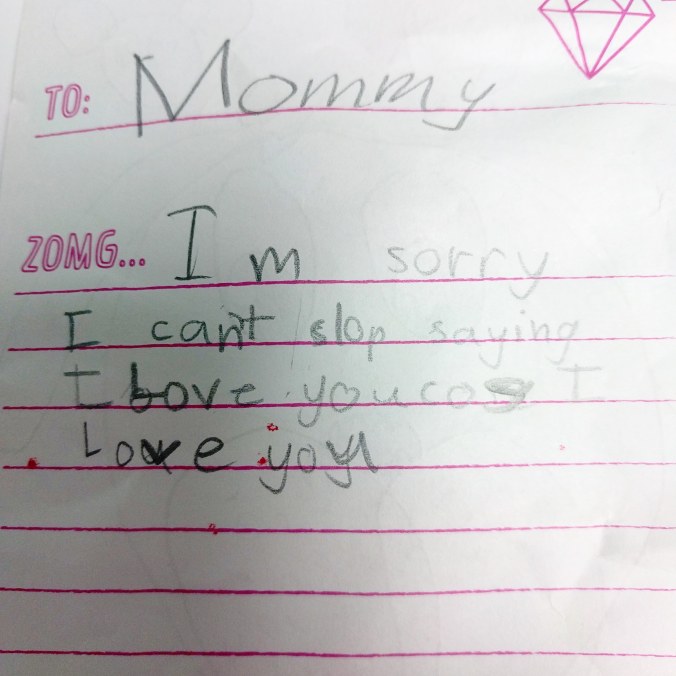 TO: Mommy
ZOMG... I m sorry
I can't slop saying
I love you cos I
Love you